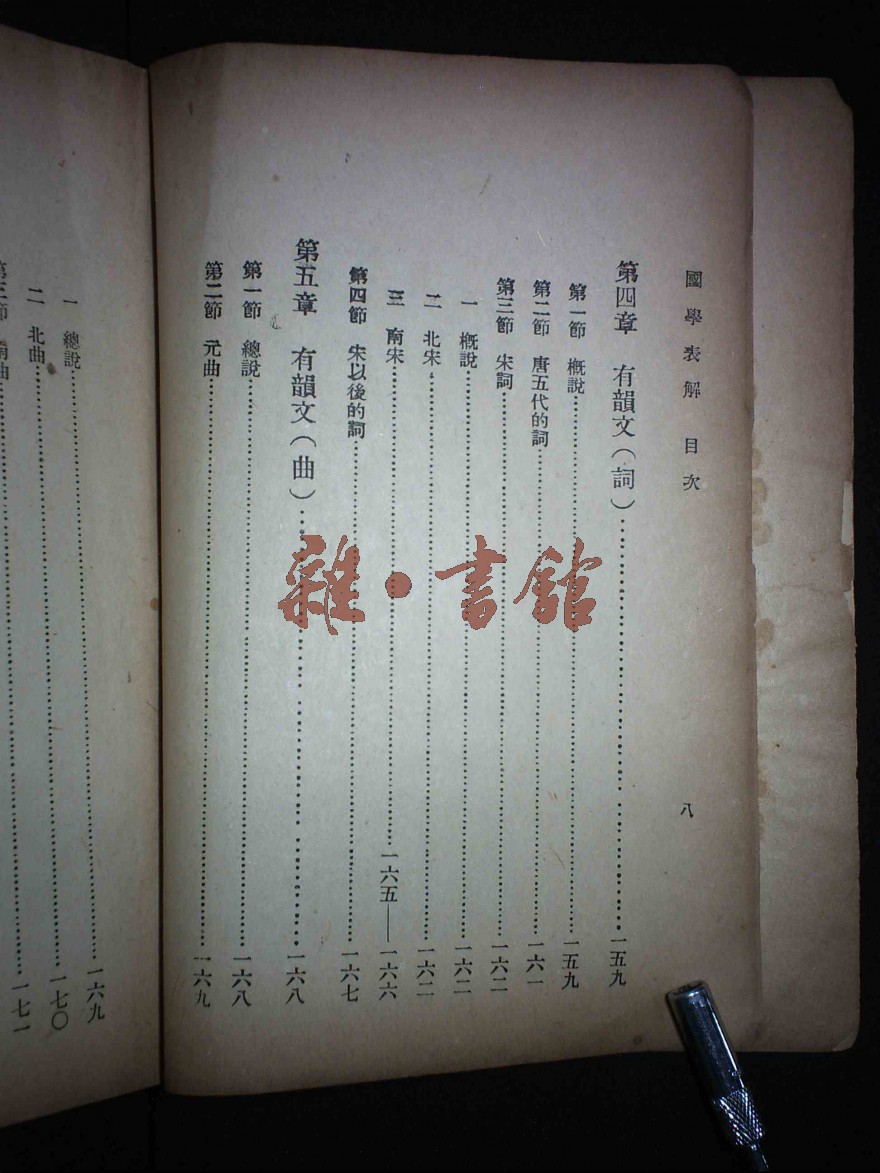 國學表解 目次
八
第四章 有韻文(詞)……一五九
第一節 概說……一五九
第二節 唐五代的詞……一六一
第三節 宋詞……一六二
一 概說……一六二
二 北宋……一六二
三 南宋……一六五——一六六
第四節 宋以後的詞……一六七
第五章 有韻文(曲)……一六八
第一節 總說……一六八
第二節 元曲……一六九
一 總說……一六九
二 北曲……一七〇
第三節 南曲……一七一
雜·書館